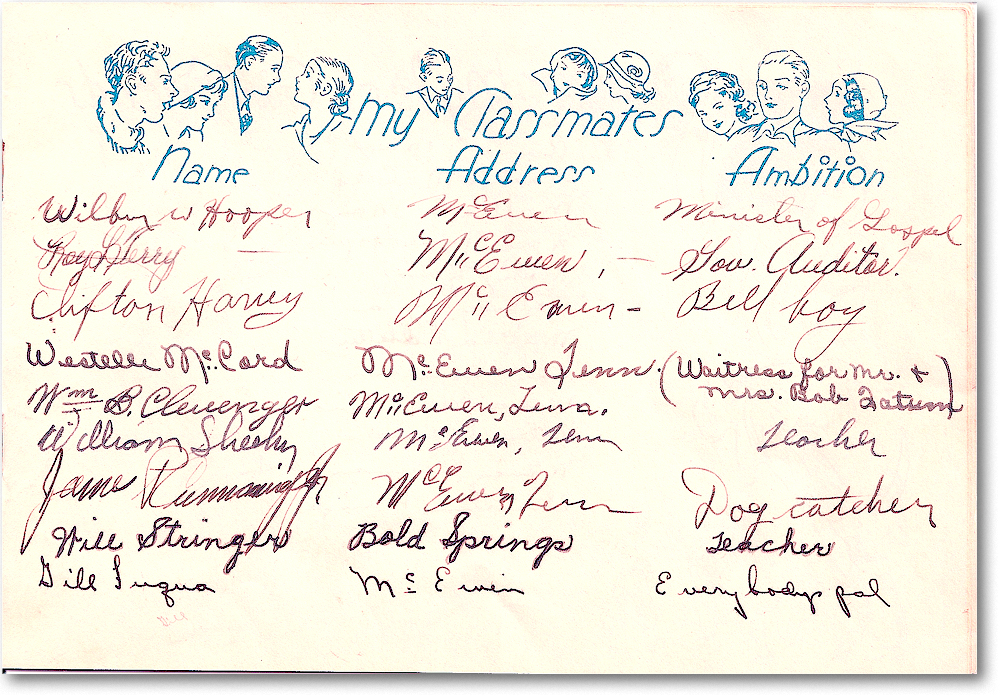 My Classmates
Name Address Ambition
Wilbur W Hooper McEwen Minister of Gospel
Roy L Terry — McEwen, — Gov. Auditor.
Clifton Harvey McEwen - Bell boy
Westelle McCord McEwen Tenn. (Waitress for Mr. + Mrs. Bob Tatum)
Wm B. Clevenger McEwen, Tenn.
William Sheehy McEwen, Tenn Teacher
James Jr McEwen Tenn Dog catcher
Will Stringer Bold Springs Teacher
Gill Fuqua McEwen Everybodys pal